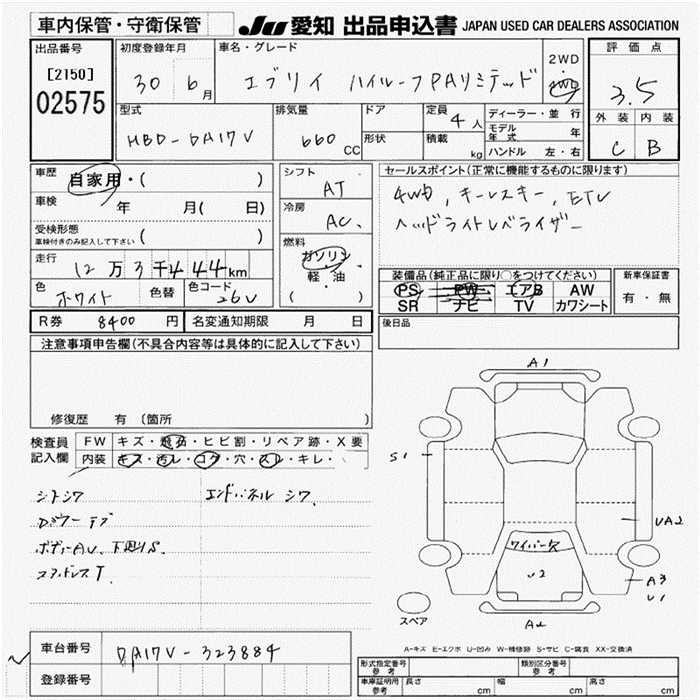 車内保管・守衛保管
JU 愛知 出品申込書 JAPAN USED CAR DEALERS ASSOCIATION
出品番号
[2150]
02575
初度登録年月
30 6月
車名・グレード
エブリイ ハイルーフPAリミテッド
2WD
・
4WD
評価点
3.5
外装 内装
C B
型式
HBD-DA17V
排気量
660 CC
ドア
形状
定員
4人
積載
kg
ディーラー・並行
モデル年式 年
ハンドル 左・右
車歴
自家用・( )
車検 年 月( 日)
受検形態
車検付きのみ記入して下さい ( )
走行
12万3千444km
色
ホワイト
色替
色コード
26V
シフト
AT
冷房
AC
燃料
ガソリン
軽・油
( )
セールスポイント(正常に機能するものに限ります)
4WD, キーレスキー, ETC
ヘッドライトレベライザー
装備品(純正品に限り○をつけてください)
PS PW エアB AW
SR ナビ TV カワシート
新車保証書
有・無
R券 8400円
名変通知期限 月 日
後日品
注意事項申告欄(不具合内容等は具体的に記入して下さい)
修復歴 有(箇所
検査員記入欄
FW キズ・飛石・ヒビ割・リペア跡・X要
内装 キズ・汚レ・コゲ・穴・スレ・キレ・
シートシワ
エンドパネル シワ
ボデーAU、下廻りS
A1
S1
UA2
ワイパー欠
U2
A3
U1
A2
スペア
A-キズ E-エクボ U-凹み W-補修跡 S-サビ C-腐食 XX-交換済
車台番号
DA17V-323884
登録番号
形式指定番号 参考
類別区分番号 参考
車庫証明用 参考
長さ cm
幅 cm
高さ cm